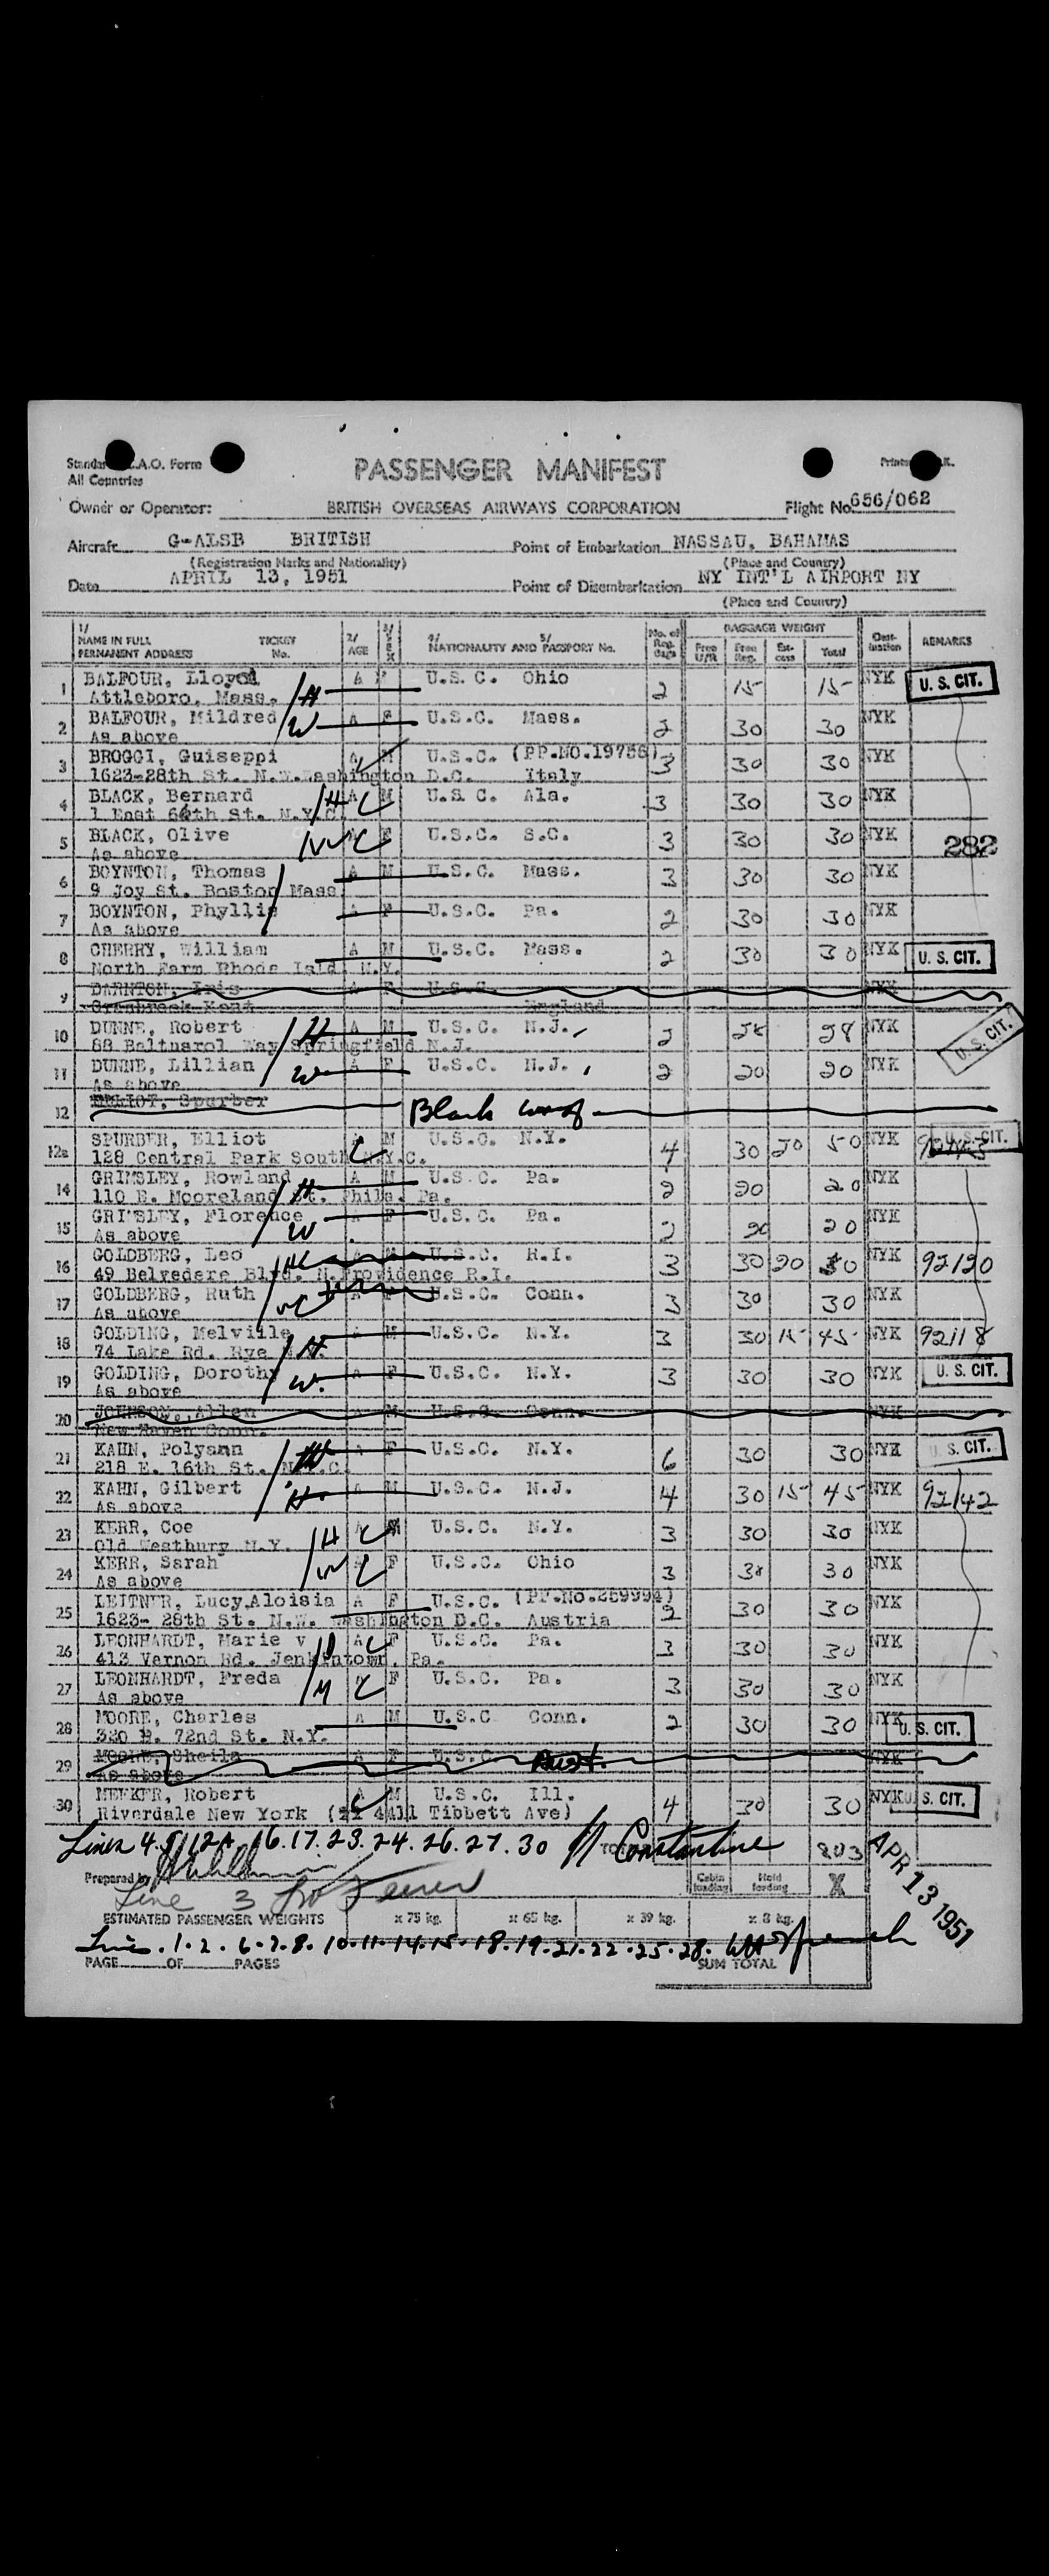 Standard I.C.A.O. Form
All Countries
PASSENGER MANIFEST
Owner or Operator: BRITISH OVERSEAS AIRWAYS CORPORATION Flight No. 656/062
Aircraft G-ALSB BRITISH Point of Embarkation NASSAU, BAHAMAS
(Registration Marks and Nationality) (Place and Country)
Date APRIL 13, 1951 Point of Disembarkation NY INT'L AIRPORT NY
(Place and Country)
1/ NAME IN FULL PERMANENT ADDRESS TICKET No. 2/ AGE 3/ SEX 4/ NATIONALITY AND 5/ PASSPORT No. No. of Reg. Bags BAGGAGE WEIGHT Free U/R Free Reg. Excess Total Destination REMARKS
1 BALFOUR, Lloyd H A U.S.C. Ohio 2 15 15 NYK U. S. CIT.
Attleboro, Mass.
2 BALFOUR, Mildred W A F U.S.C. Mass. 2 30 30 NYK
As above
3 BROGGI, Guiseppi A M U.S.C. (PP.NO.19756) 3 30 30 NYK
1623-28th St. N.W. Washington D.C. Italy
4 BLACK, Bernard H A C M U.S.C. Ala. 3 30 30 NYK
1 East 64th St. N.Y.C.
5 BLACK, Olive W C F U.S.C. S.C. 3 30 30 NYK 282
As above
6 BOYNTON, Thomas A M U.S.C. Mass. 3 30 30 NYK
9 Joy St. Boston Mass
7 BOYNTON, Phyllis A F U.S.C. Pa. 2 30 30 NYK
As above
8 CHERRY, William A M U.S.C. Mass. 2 30 30 NYK U. S. CIT.
North Farm Rhode Isld. N.Y.
9 DARNTON, Iris A F U.S.C. NYK
Cranbrook Kent England
10 DUNNE, Robert H A M U.S.C. N.J. 2 28 28 NYK U. S. CIT.
88 Baltusrol Way Springfield N.J.
11 DUNNE, Lillian W A F U.S.C. N.J. 2 20 20 NYK
As above
12 ELLIOT, Spurber Blank
12a SPURBER, Elliot C M U.S.C. N.Y. 4 30 20 50 NYK U. S. CIT.
128 Central Park South N.Y.C.
14 GRIMSLEY, Rowland H A M U.S.C. Pa. 2 20 20 NYK
110 E. Mooreland St. Phila. Pa.
15 GRIMSLEY, Florence W A F U.S.C. Pa. 2 20 20 NYK
As above
16 GOLDBERG, Leo H U.S.C. R.I. 3 30 20 50 NYK 92120
49 Belvedere Blvd. N.Providence R.I.
17 GOLDBERG, Ruth W C F U.S.C. Conn. 3 30 30 NYK
As above
18 GOLDING, Melville H A M U.S.C. N.Y. 3 30 15 45 NYK 92118
74 Lake Rd. Rye N.Y.
19 GOLDING, Dorothy W. A F U.S.C. N.Y. 3 30 30 NYK U. S. CIT.
As above
20 JOHNSON, Allen A M U.S.C. Conn. NYK
New Haven Conn.
21 KAHN, Polyann W A F U.S.C. N.Y. 6 30 30 NYK U. S. CIT.
218 E. 16th St. N.Y.C.
22 KAHN, Gilbert H A M U.S.C. N.J. 4 30 15 45 NYK 92142
As above
23 KERR, Coe H A C M U.S.C. N.Y. 3 30 30 NYK
Old Westbury N.Y.
24 KERR, Sarah W C F U.S.C. Ohio 3 30 30 NYK
As above
25 LEITNER, Lucy,Aloisia A F U.S.C. (PP.NO.259994) 2 30 30 NYK
1623- 28th St. N.W. Washington D.C. Austria
26 LEONHARDT, Marie v A C F U.S.C. Pa. 3 30 30 NYK
413 Vernon Rd. Jenkintown, Pa.
27 LEONHARDT, Freda C F U.S.C. Pa. 3 30 30 NYK
As above
28 MOORE, Charles A M U.S.C Conn. 2 30 30 NYK U. S. CIT.
320 E. 72nd St. N.Y.
29 MOORE, Sheila A F U.S.C. Aust. NYK
As above
30 MEEKER, Robert C M U.S.C. Ill. 4 30 30 NYK U. S. CIT.
Riverdale New York (4411 Tibbett Ave)
Lines 4.5.12A.16.17.23.24.26.27.30 Constantine 803
Prepared by Cabin loading Hold loading X APR 13 1951
Line 3
ESTIMATED PASSENGER WEIGHTS x 75 kg. x 65 kg. x 39 kg. x 8 kg.
Lines. 1.2. 6.7.8. 10.11.14.15.18.19.21.22.25.28.
PAGE OF PAGES SUM TOTAL